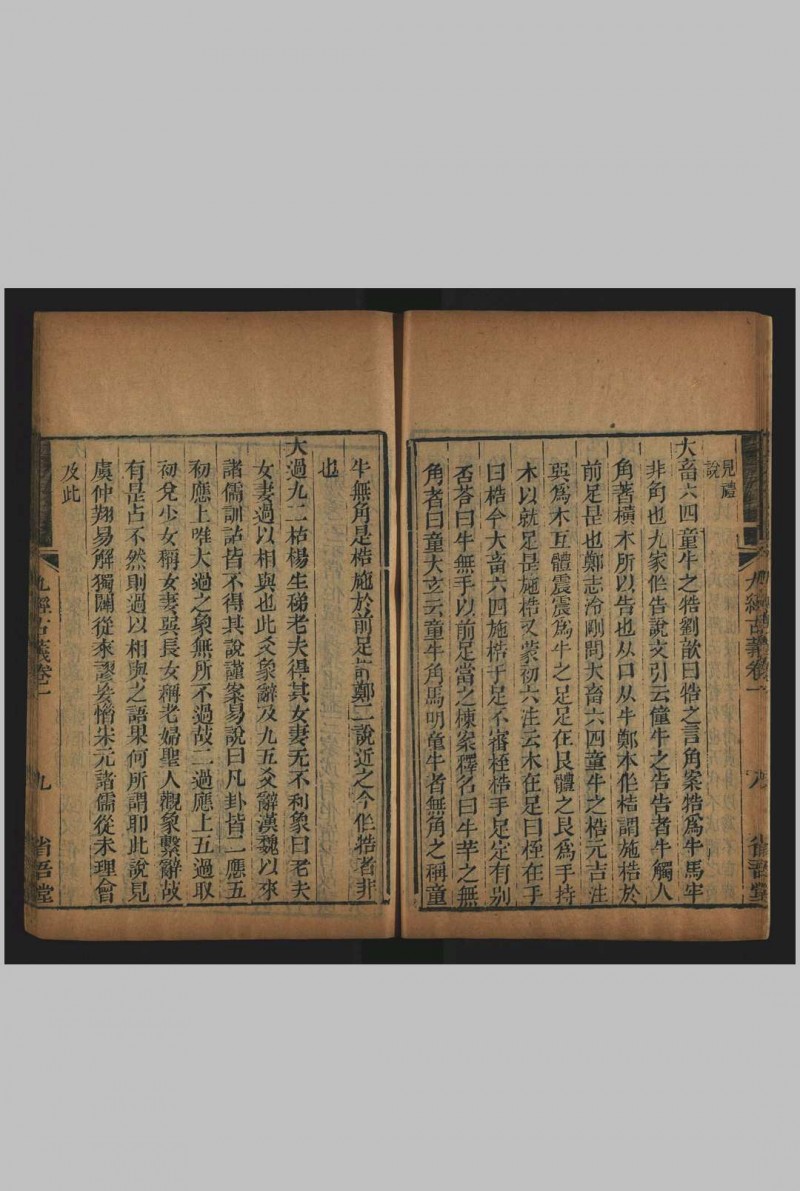 見禮
說
大畜六四童牛之牿劉歆曰牿之言角案牿爲牛馬牢
非角也九家作告說文引云僮牛之告告者牛觸人
角著橫木所以告也从口从牛鄭本作梏謂施梏於
前足是也鄭志泠剛問大畜六四童牛之梏元吉注
巽爲木互體震震爲牛之足足在艮體之艮爲手持
木以就足是施梏又蒙初六注云木在足曰桎在手
曰梏今大畜六四施梏于足不審桎梏手足定有別
否荅曰牛無手以前足當之棟案釋名曰牛羊之無
角者曰童大玄云童牛角馬明童牛者無角之稱童
九經古義卷一
九
省吾堂
牛無角是梏施於前足許鄭二說近之今作牿者非
也
大過九二枯楊生稊老夫得其女妻无不利象曰老夫
女妻過以相與也此爻象辭及九五爻辭漢魏以來
諸儒訓詁皆不得其說謹案易說曰凡卦皆二應五
初應上唯大過之象無所不過故二過應上五過取
初兌少女稱女妻巽長女稱老婦聖人觀象繫辭故
有是占不然則過以相與之語果何所謂耶此說見
虞仲翔易解獨闢從來謬妄惜宋元諸儒從未理會
及此
九經古義卷一
九
省吾堂